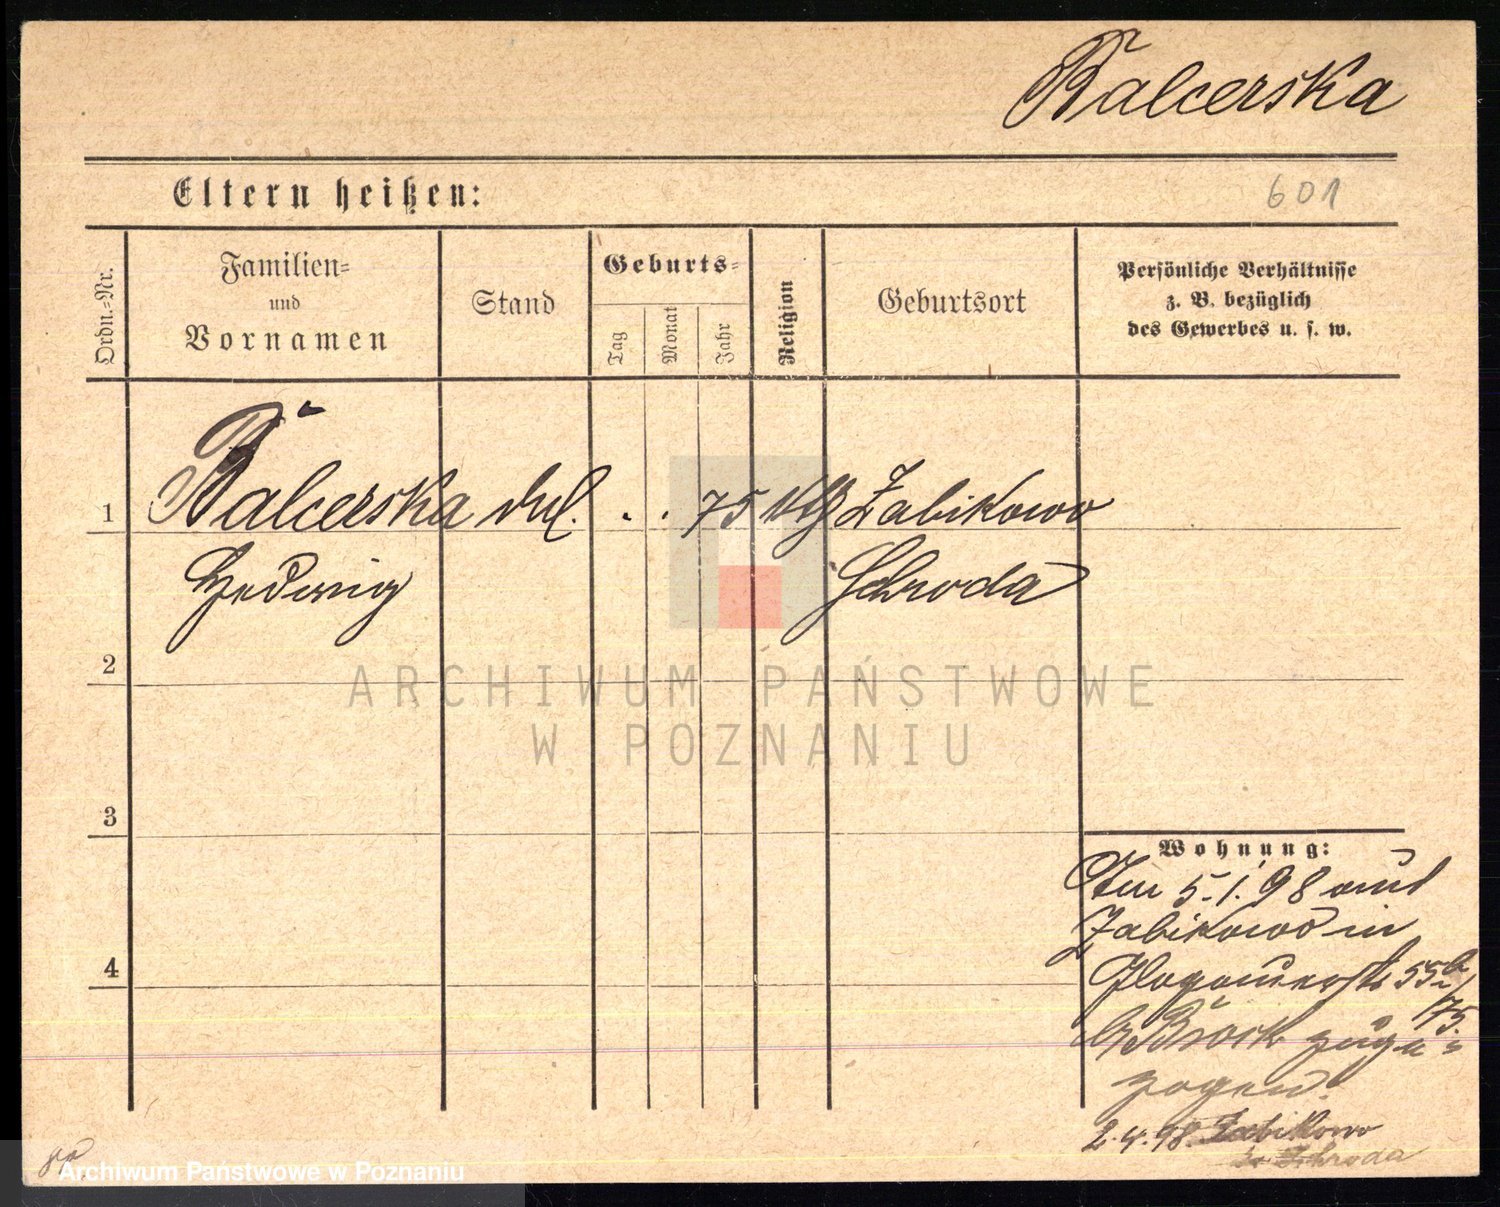 Balcerska
Eltern heißen:
601
Ordn.-Nr.
Familien-
und
Vornamen
Stand
Geburts-
Tag
Monat
Jahr
Religion
Geburtsort
Persönliche Verhältnisse
z. B. bezüglich
des Gewerbes u. s. w.
1 Balcerska . . 75 Zabikowo
Hedwig Schroda
2
ARCHIWUM PAŃSTWOWE
W POZNANIU
3
Wohnung:
Am 5.1.98 aus
Zabikowo in
55b/
75.
zuge-
zogen.
2.4.98 Zabikowo
Schroda
4
Archiwum Państwowe w Poznaniu